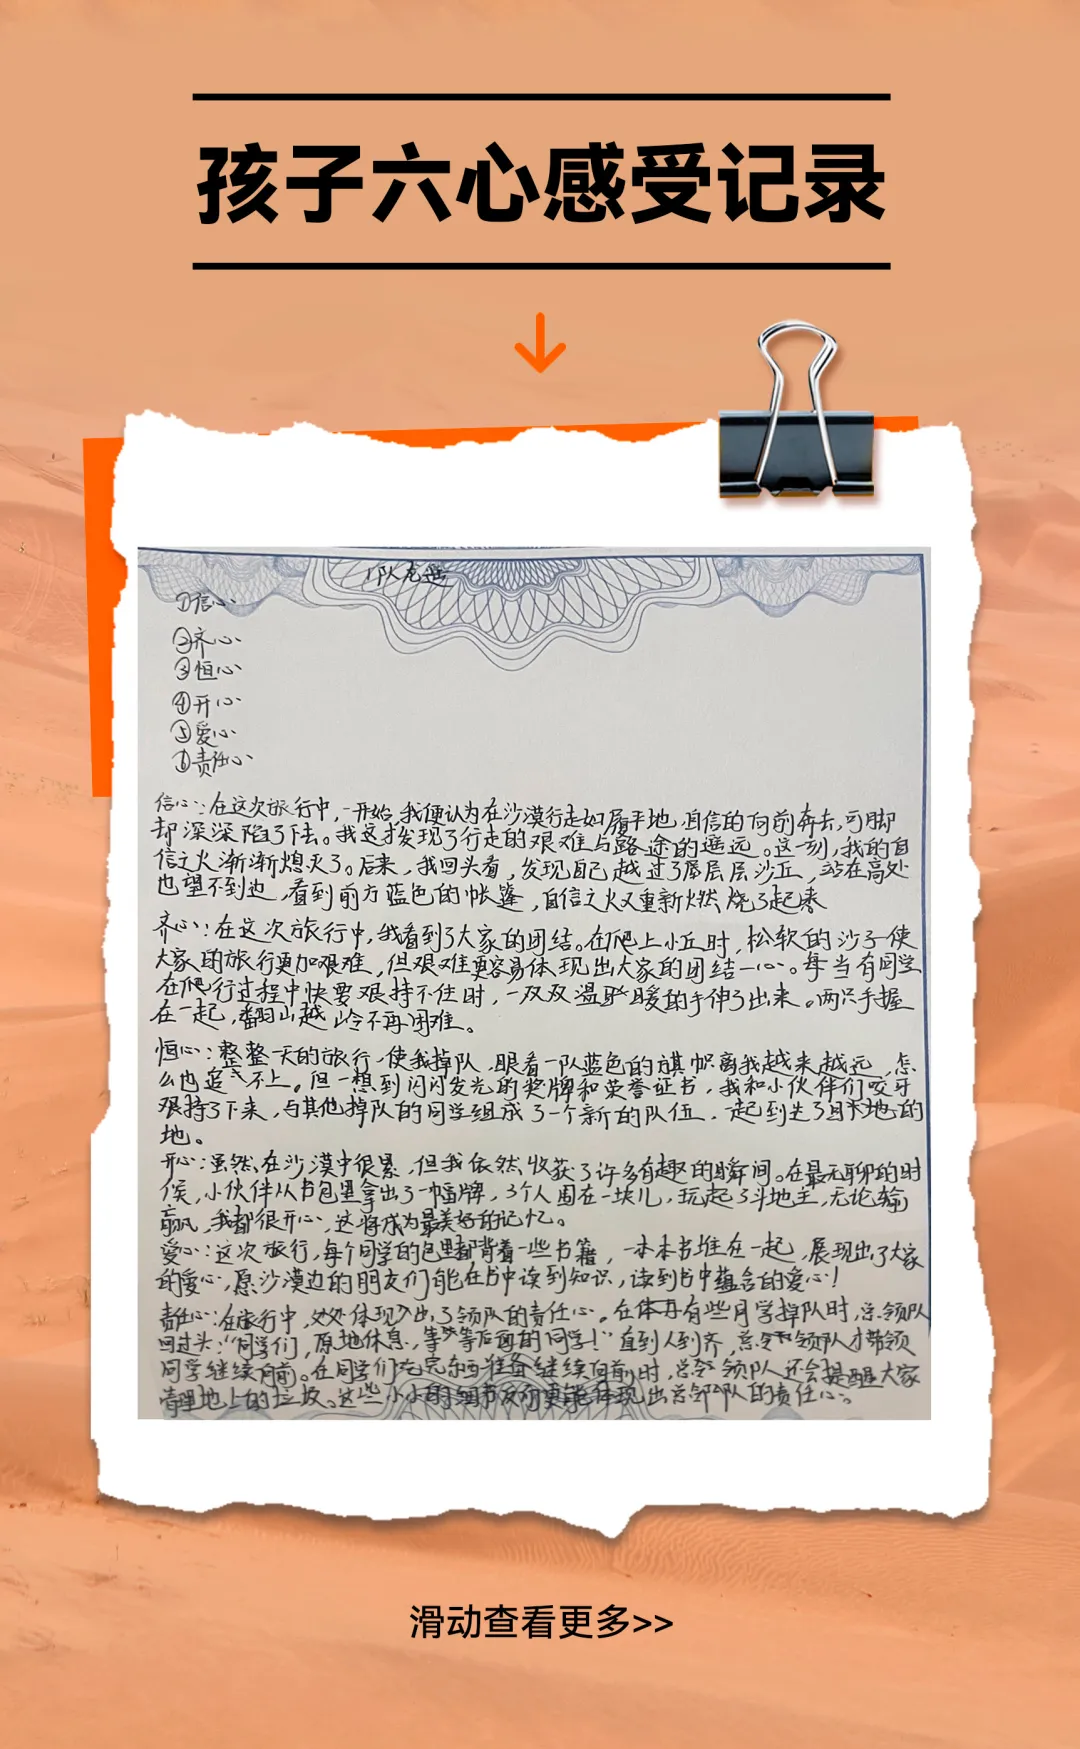 孩子六心感受记录
1队
①信心
②齐心
③恒心
④开心
⑤爱心
⑥责任心
信心：在这次旅行中，一开始，我便认为在沙漠行走如履平地，自信的向前奔去，可脚
却深深陷了下去。我这才发现了行走的艰难与路途的遥远。这一刻，我的自
信之火渐渐熄灭了。后来，我回头看，发现自己越过了层层沙丘，站在高处
也望不到边，看到前方蓝色的帐篷，自信之火又重新燃烧了起来
齐心：在这次旅行中，我看到了大家的团结。在爬上小丘时，松软的沙子使
大家的旅行更加艰难，但艰难更容易体现出大家的团结一心。每当有同学
在爬行过程中快要艰持不住时，一双双温暖的手伸了出来。两只手握
在一起，翻山越岭不再困难。
恒心：整整一天的旅行使我掉队，眼看一队蓝色的旗帜离我越来越远，怎
么也追不上。但一想到闪闪发光的奖牌和荣誉证书，我和小伙伴们咬牙
艰持了下来，与其他掉队的同学组成了一个新的队伍，一起到达了目的
地。
开心：虽然在沙漠中很累，但我依然收获了许多有趣的瞬间。在最无聊的时
候，小伙伴从书包里拿出了一幅牌，3个人围在一块儿，玩起了斗地主，无论输
赢，我都很开心，这将成为最美好的记忆。
爱心：这次旅行，每个同学的包里都背着一些书籍，一本本书堆在一起，展现出了大家
的爱心，原沙漠边的朋友们能在书中读到知识，读到书中蕴含的爱心！
责任心：在旅行中，处处体现出了领队的责任心。在有些同学掉队时，总领队
回过头：“同学们，原地休息，等等后面的同学！”直到人到齐，总领队才带领
同学继续向前。在同学们吃完东西准备继续向前时，总领队还会提醒大家
清理地上的垃圾。这些小小的细节反而更能体现出总领队的责任心。
滑动查看更多>>